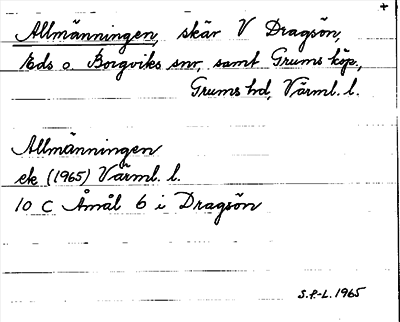 +
Allmänningen, skär V Dragsön,
Eds o. Borgviks snr, samt Grums köp.,
Grums hd, Värml. l.
Allmänningen
ek (1965) Värml. l.
10 C Åmål 6 i Dragsön
S.P.-L. 1965